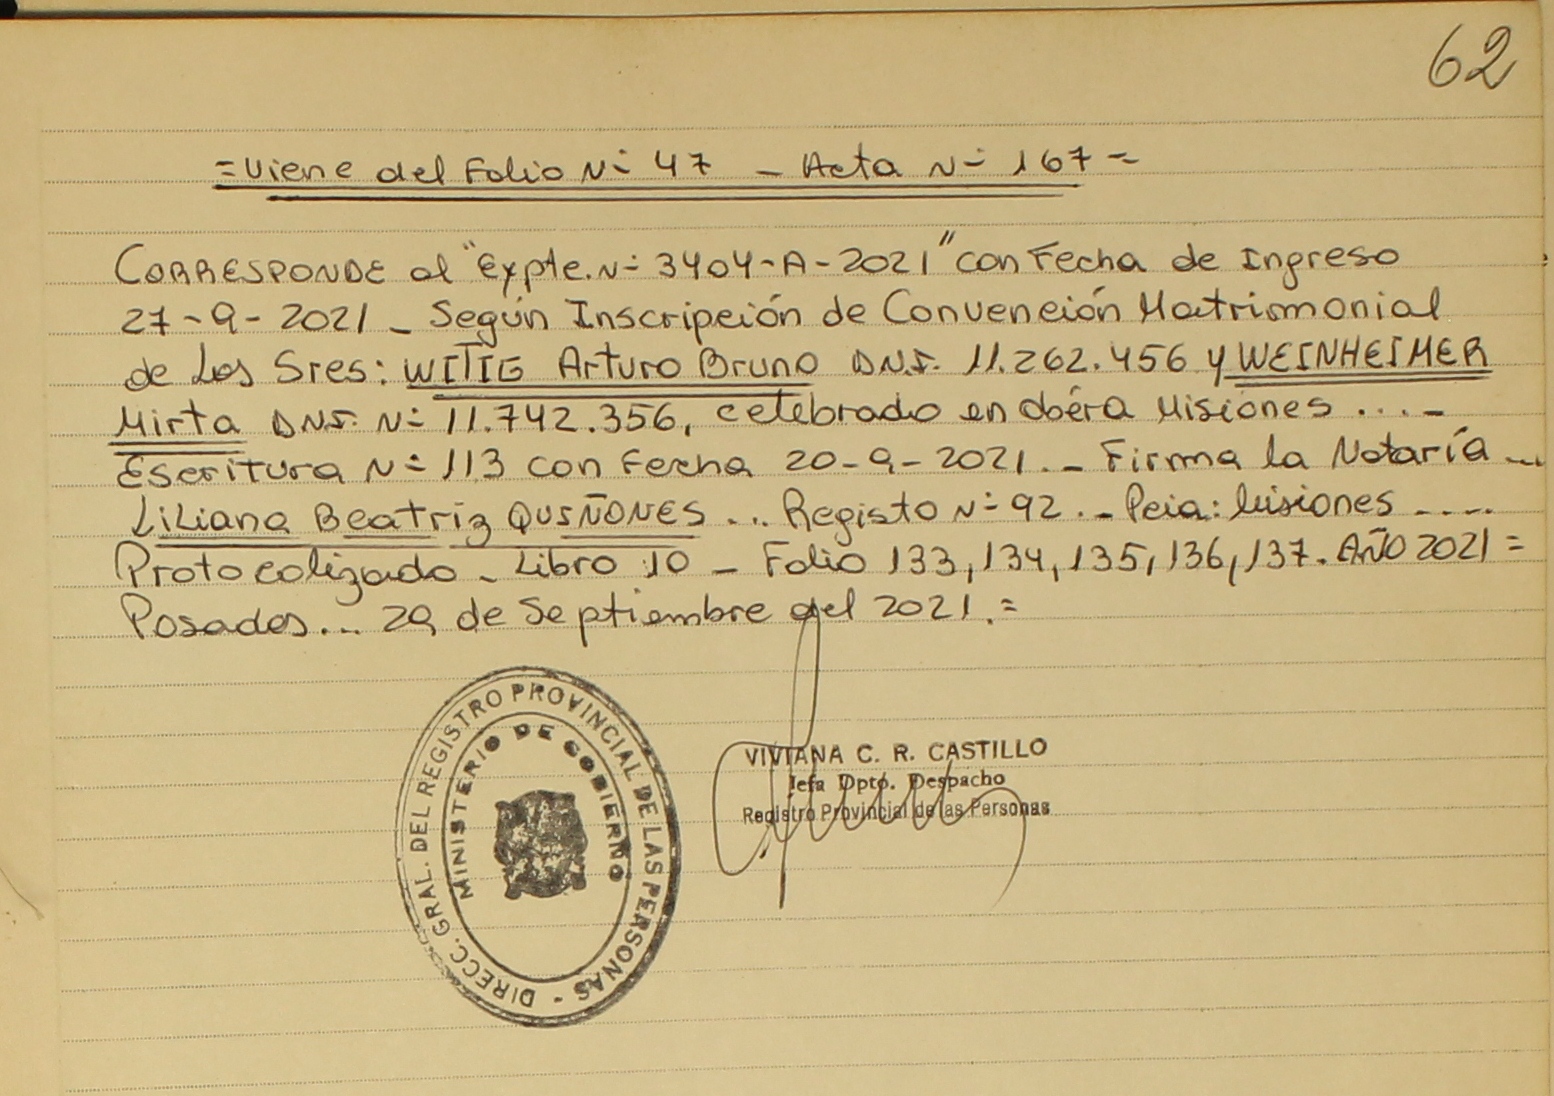 62
= Viene del Folio Nº 47 _ Acta Nº 167 =
CORRESPONDE al "Expte. Nº 3404-A-2021" con Fecha de Ingreso
27-9-2021 _ Según Inscripción de Convención Matrimonial
de Los Sres: WITIG Arturo Bruno DNI. 11.262.456 y WEINHEIMER
Mirta DNI. Nº 11.742.356, celebrado en Oberá Misiones ....-
Escritura Nº 113 con Fecha 20-9-2021._ Firma la Notaría _..
Liliana Beatriz QUIÑONES ... Registo Nº 92._ Pcia: Misiones ....
Protocolizado _ Libro 10 _ Folio 133, 134, 135, 136, 137. AÑO 2021 =
Posadas... 29 de Septiembre del 2021.=
DIRECC. GRAL. DEL REGISTRO PROVINCIAL DE LAS PERSONAS -
MINISTERIO DE GOBIERNO
VIVIANA C. R. CASTILLO
Jefa Dpto. Despacho
Registro Provincial de las Personas